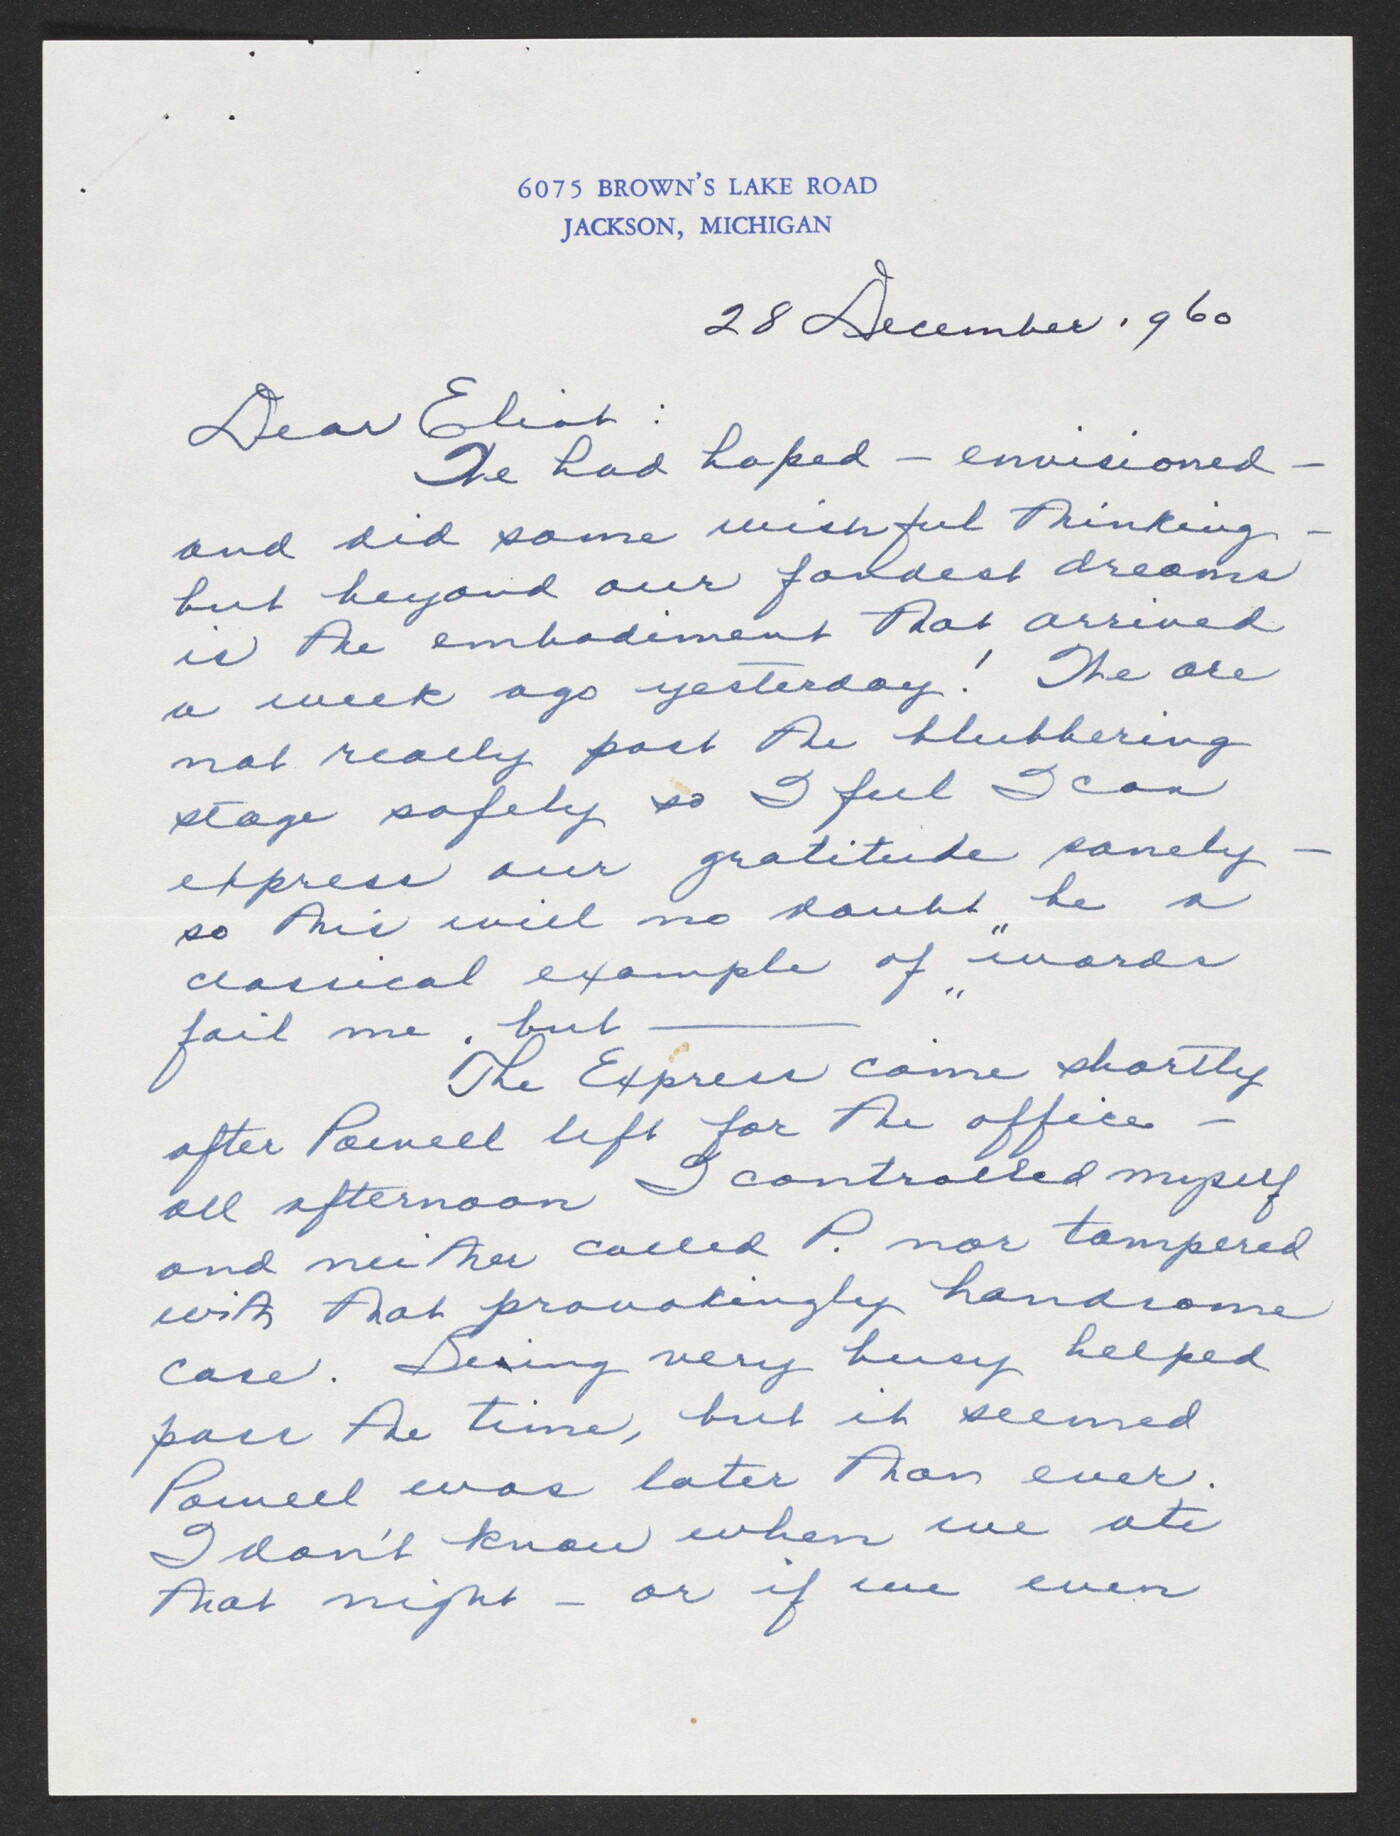 6075 BROWN'S LAKE ROAD
JACKSON, MICHIGAN
28 December 1960
Dear Eliot:
We had hoped – envisioned –
and did some wishful thinking –
but beyond our fondest dreams
is the embodiment that arrived
a week ago yesterday! We are
not really past the blubbering
stage safely so I feel I can
express our gratitude sanely –
so this will no doubt be a
classical example of "words
fail me", but ———
The Express came shortly
after Powell left for the office –
all afternoon I controlled myself
and neither called P. nor tampered
with that provokingly handsome
case. Being very busy helped
pass the time, but it seemed
Powell was later than ever.
I don't know when we ate
that night – or if we even